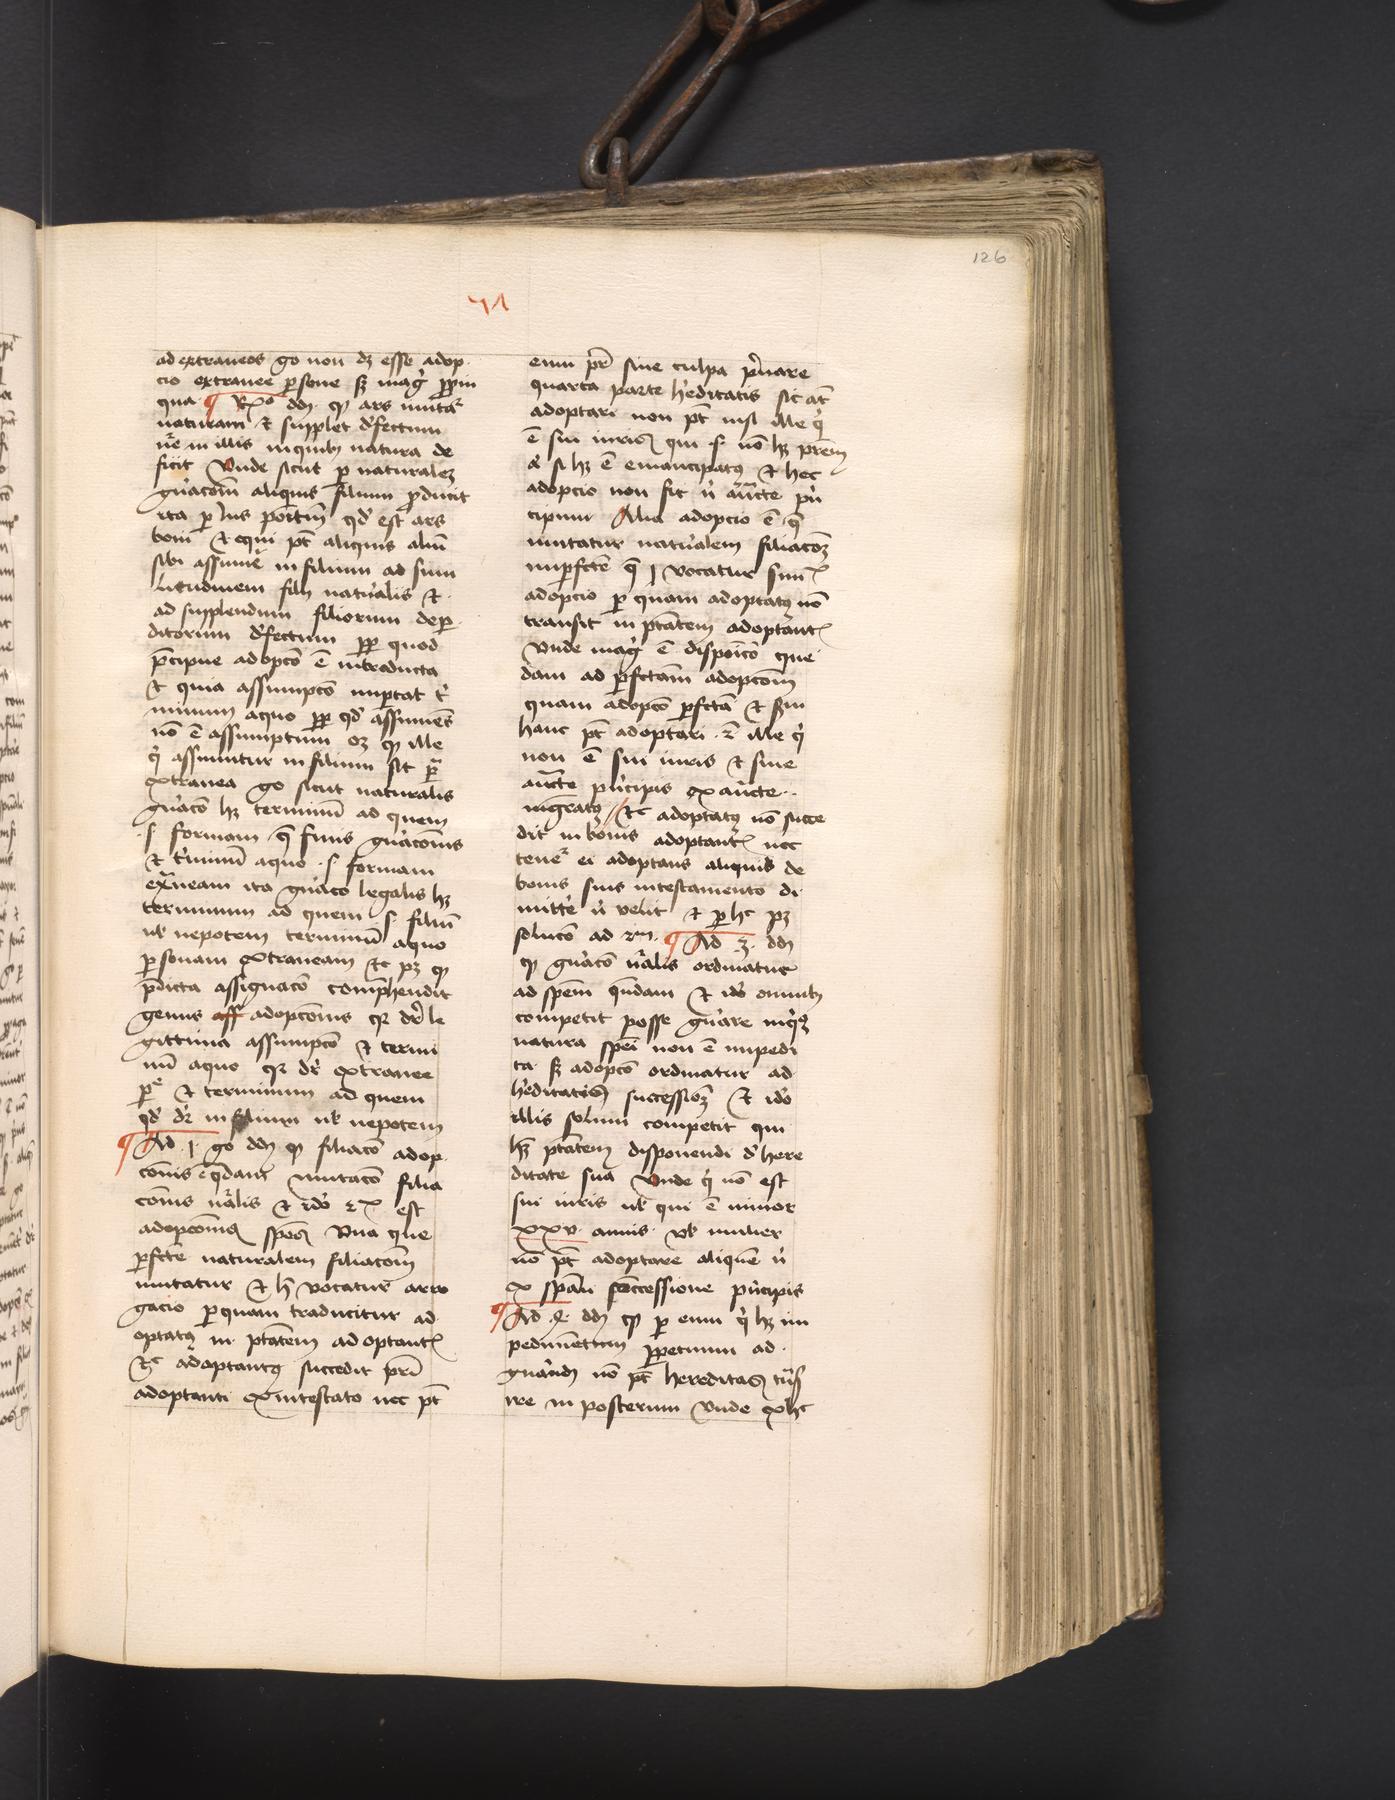 126
ad extraneos go non dz esse adop
cio extranee persone sz mag ppin
qua ddm qp ars imitat
naturam et supplet defectum
in illis in quibus natura de
ficit Unde sicut per naturalez
gnacom aliquis filium producit
ita per ius qd est ars
boni et equi pt aliquis aliu
sibi assume in filium ad sim
litudinem filij naturalis et
ad supplendum filiorum deper
ditorum defectum pp quod
precipue adopco e introducta
et quia assumpco importat t
minum a quo pp qd assumes
no e assumptum oz qp ille
q assumitur in filium sit p
extranea go sicut naturalis
gnaco hz terminu ad quem
s formam q finis gnaconis
et terminu a quo s formam
ita gnaco legalis hz
terminum ad quem s filiu
ul nepotem terminu a quo
personam extraneam et pz qp
predicta assignaco comprehendit
genus adopconis qr dr le
gittima assumpco et termi
nu a quo qr dr extranee
et terminum ad quem
qd dr in filium ul nepotem
Ad 1 go ddm qp filiaco adop
conis imitaco filia
conis nralis et ido 2x est
Una que
perfecte naturalem filiacom
imitatur et h vocatur arro
gacio per quam traducitur ad
optatus in ptatem adoptant
et adoptatus succedit pri
adoptanti ex intestato nec pt
eum pr sine culpa privare
quarta parte hereditatis sic at
adoptari non pt nisi ille q
e sui iuris qui s no hz prem
si hz e emancipatus et hec
adopcio non fit n aucte prin
cipum Alia adopcio e q
imitatur naturalem filiacoz
imperfecte q vocatur simplex
adopcio per quam adoptatus no
transit in ptatem adoptant
Unde mag e disposico que
dam ad perfectam adopcom
quam adopco perfecta et sm
hanc pt adoptari ille q
non e sui iuris et sine
aucte principis ex aucte
et adoptatus no succe
dit in bonis adoptant nec
tenet ei adoptans aliquid de
bonis suis in testamento di
mitte n velit et per h pz
soluco ad 2m Ad 3 ddm
qp gnaco nralis ordinatur
ad spem quandam et ido omnibus
competit posse gnare in quibus
natura spei non e impedi
ta sz adopco ordinatur ad
hereditatis successioz et ido
illis solum competit qui
hz ptatem disponendi de here
ditate sua Unde q no est
sui iuris ul qui e minor
xxv annis ul mulier
no pt adoptare aliquem n
ex spali concessione principis
Ad 4 ddm qp per eum q hz im
pedimentum perpetuum ad
gnandum no pt hereditas trans
ire in posterum Unde ex h